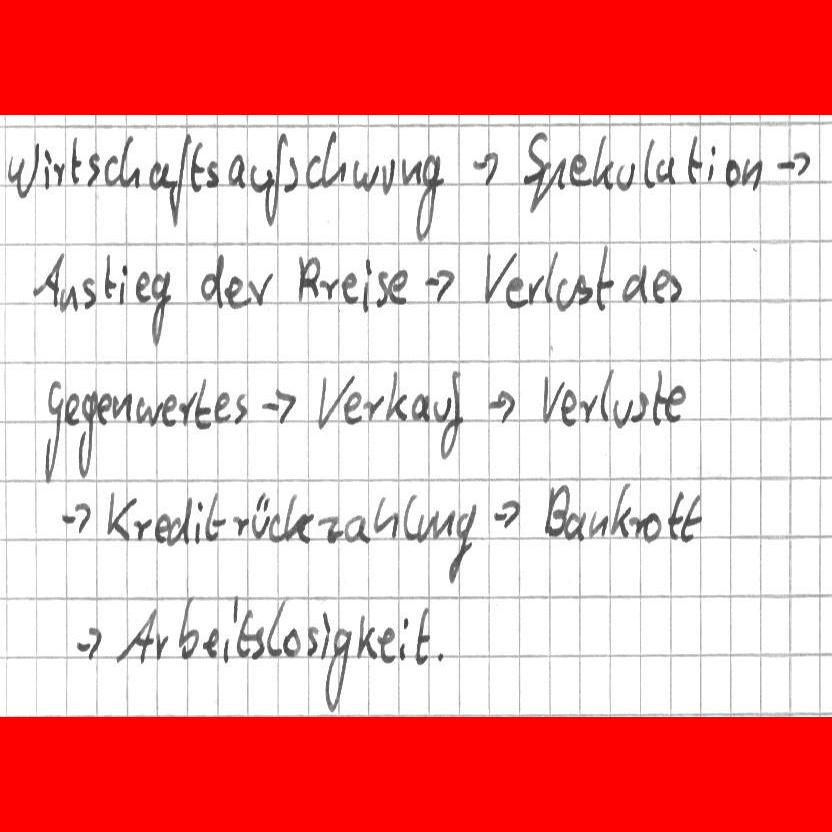 Wirtschaftsaufschwung → Spekulation →
Anstieg der Preise → Verlust des
Gegenwertes → Verkauf → Verluste
→ Kreditrückzahlung → Bankrott
→ Arbeitslosigkeit.